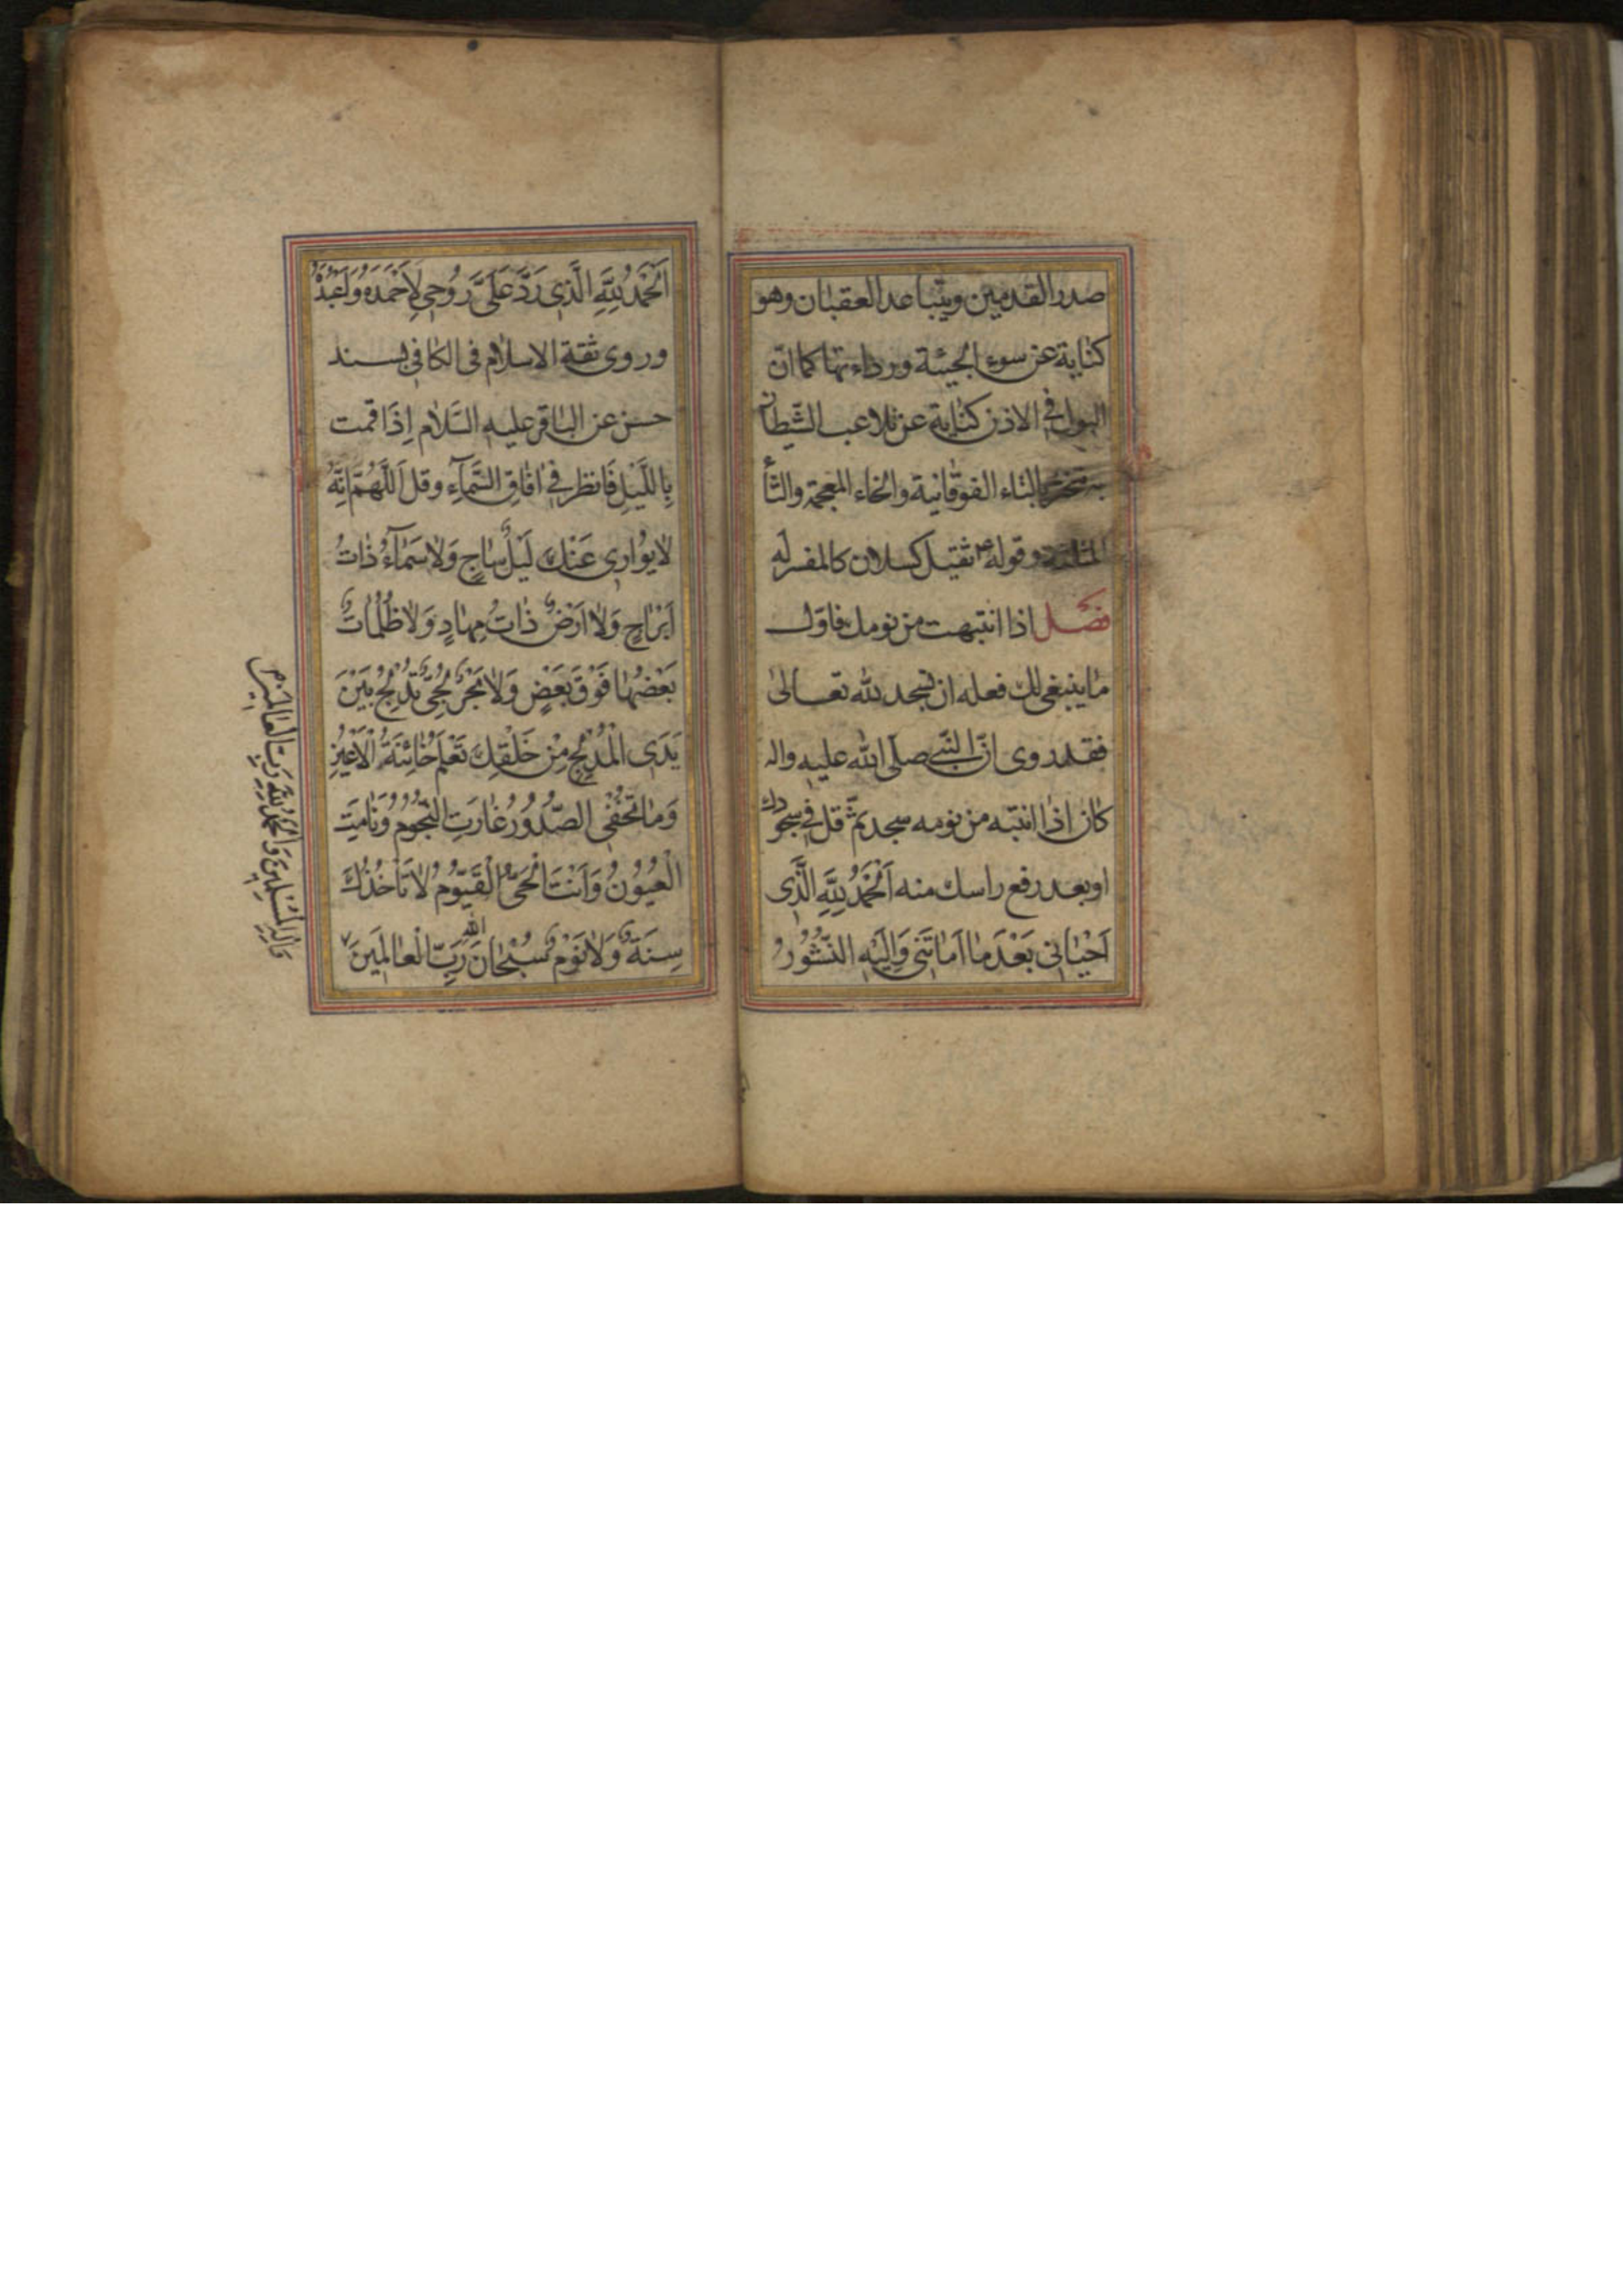 صدر القدمين ويتباعد العقبان وهو
كناية عن سوء الجيئة ورداءتها كما ان
البول في الاذن كناية عن تلاعب الشيطان
به بالتاء الفوقانية والخاء المعجمة والثا
المثلثة وقوله ثقيل كسلان كالمفسر له
فصل اذا انتبهت من نومك فاول
ما ينبغي لك فعله ان تسجد لله تعالى
فقد روى ان النبي صلى الله عليه واله
كان اذا انتبه من نومه سجد ثم قل في سجودك
او بعد رفع راسك منه اَلْحَمْدُ لِلّٰهِ الَّذِى
اَحْيَانِى بَعْدَ مَا اَمَاتَنِى وَاِلَيْهِ النُّشُورُ
اَلْحَمْدُ لِلّٰهِ الَّذِى رَدَّ عَلَىَّ رُوحِى لِاَحْمَدَهُ وَاَعْبُدَهُ
وروى ثقة الاسلام فى الكافى بسند
حسن عن الباقر عليه السَّلام اِذَا قمت
بِاللَّيْلِ فَانظر فِى افَاقِ السَّمَآءِ وقل اَللّٰهُمَّ اِنَّهُ
لَا يُوَارِى عَنْكَ لَيْلٌ سَاجٍ وَلَا سَمَآءٌ ذَاتُ
اَبْرَاجٍ وَلَا اَرْضٌ ذَاتُ مِهَادٍ وَلَا ظُلُمَاتٌ
بَعْضُهَا فَوْقَ بَعْضٍ وَلَا بَحْرٌ لُجِّىٌّ تُدْلِجُ بَيْنَ
يَدَىِ الْمُدْلِجِ مِنْ خَلْقِكَ تَعْلَمُ خَائِنَةَ الْاَعْيُنِ
وَمَا تُخْفِى الصُّدُورُ غَارَتِ النُّجُومُ وَنَامَتِ
الْعُيُونُ وَاَنْتَ الْحَىُّ الْقَيُّومُ لَا تَاْخُذُكَ
سِنَةٌ وَلَا نَوْمٌ سُبْحَانَ اللّٰهِ رَبِّ الْعَالَمِينَ
وَاِلٰهِ الْمُرْسَلِينَ وَالْحَمْدُ لِلّٰهِ رَبِّ الْعَالَمِينَ